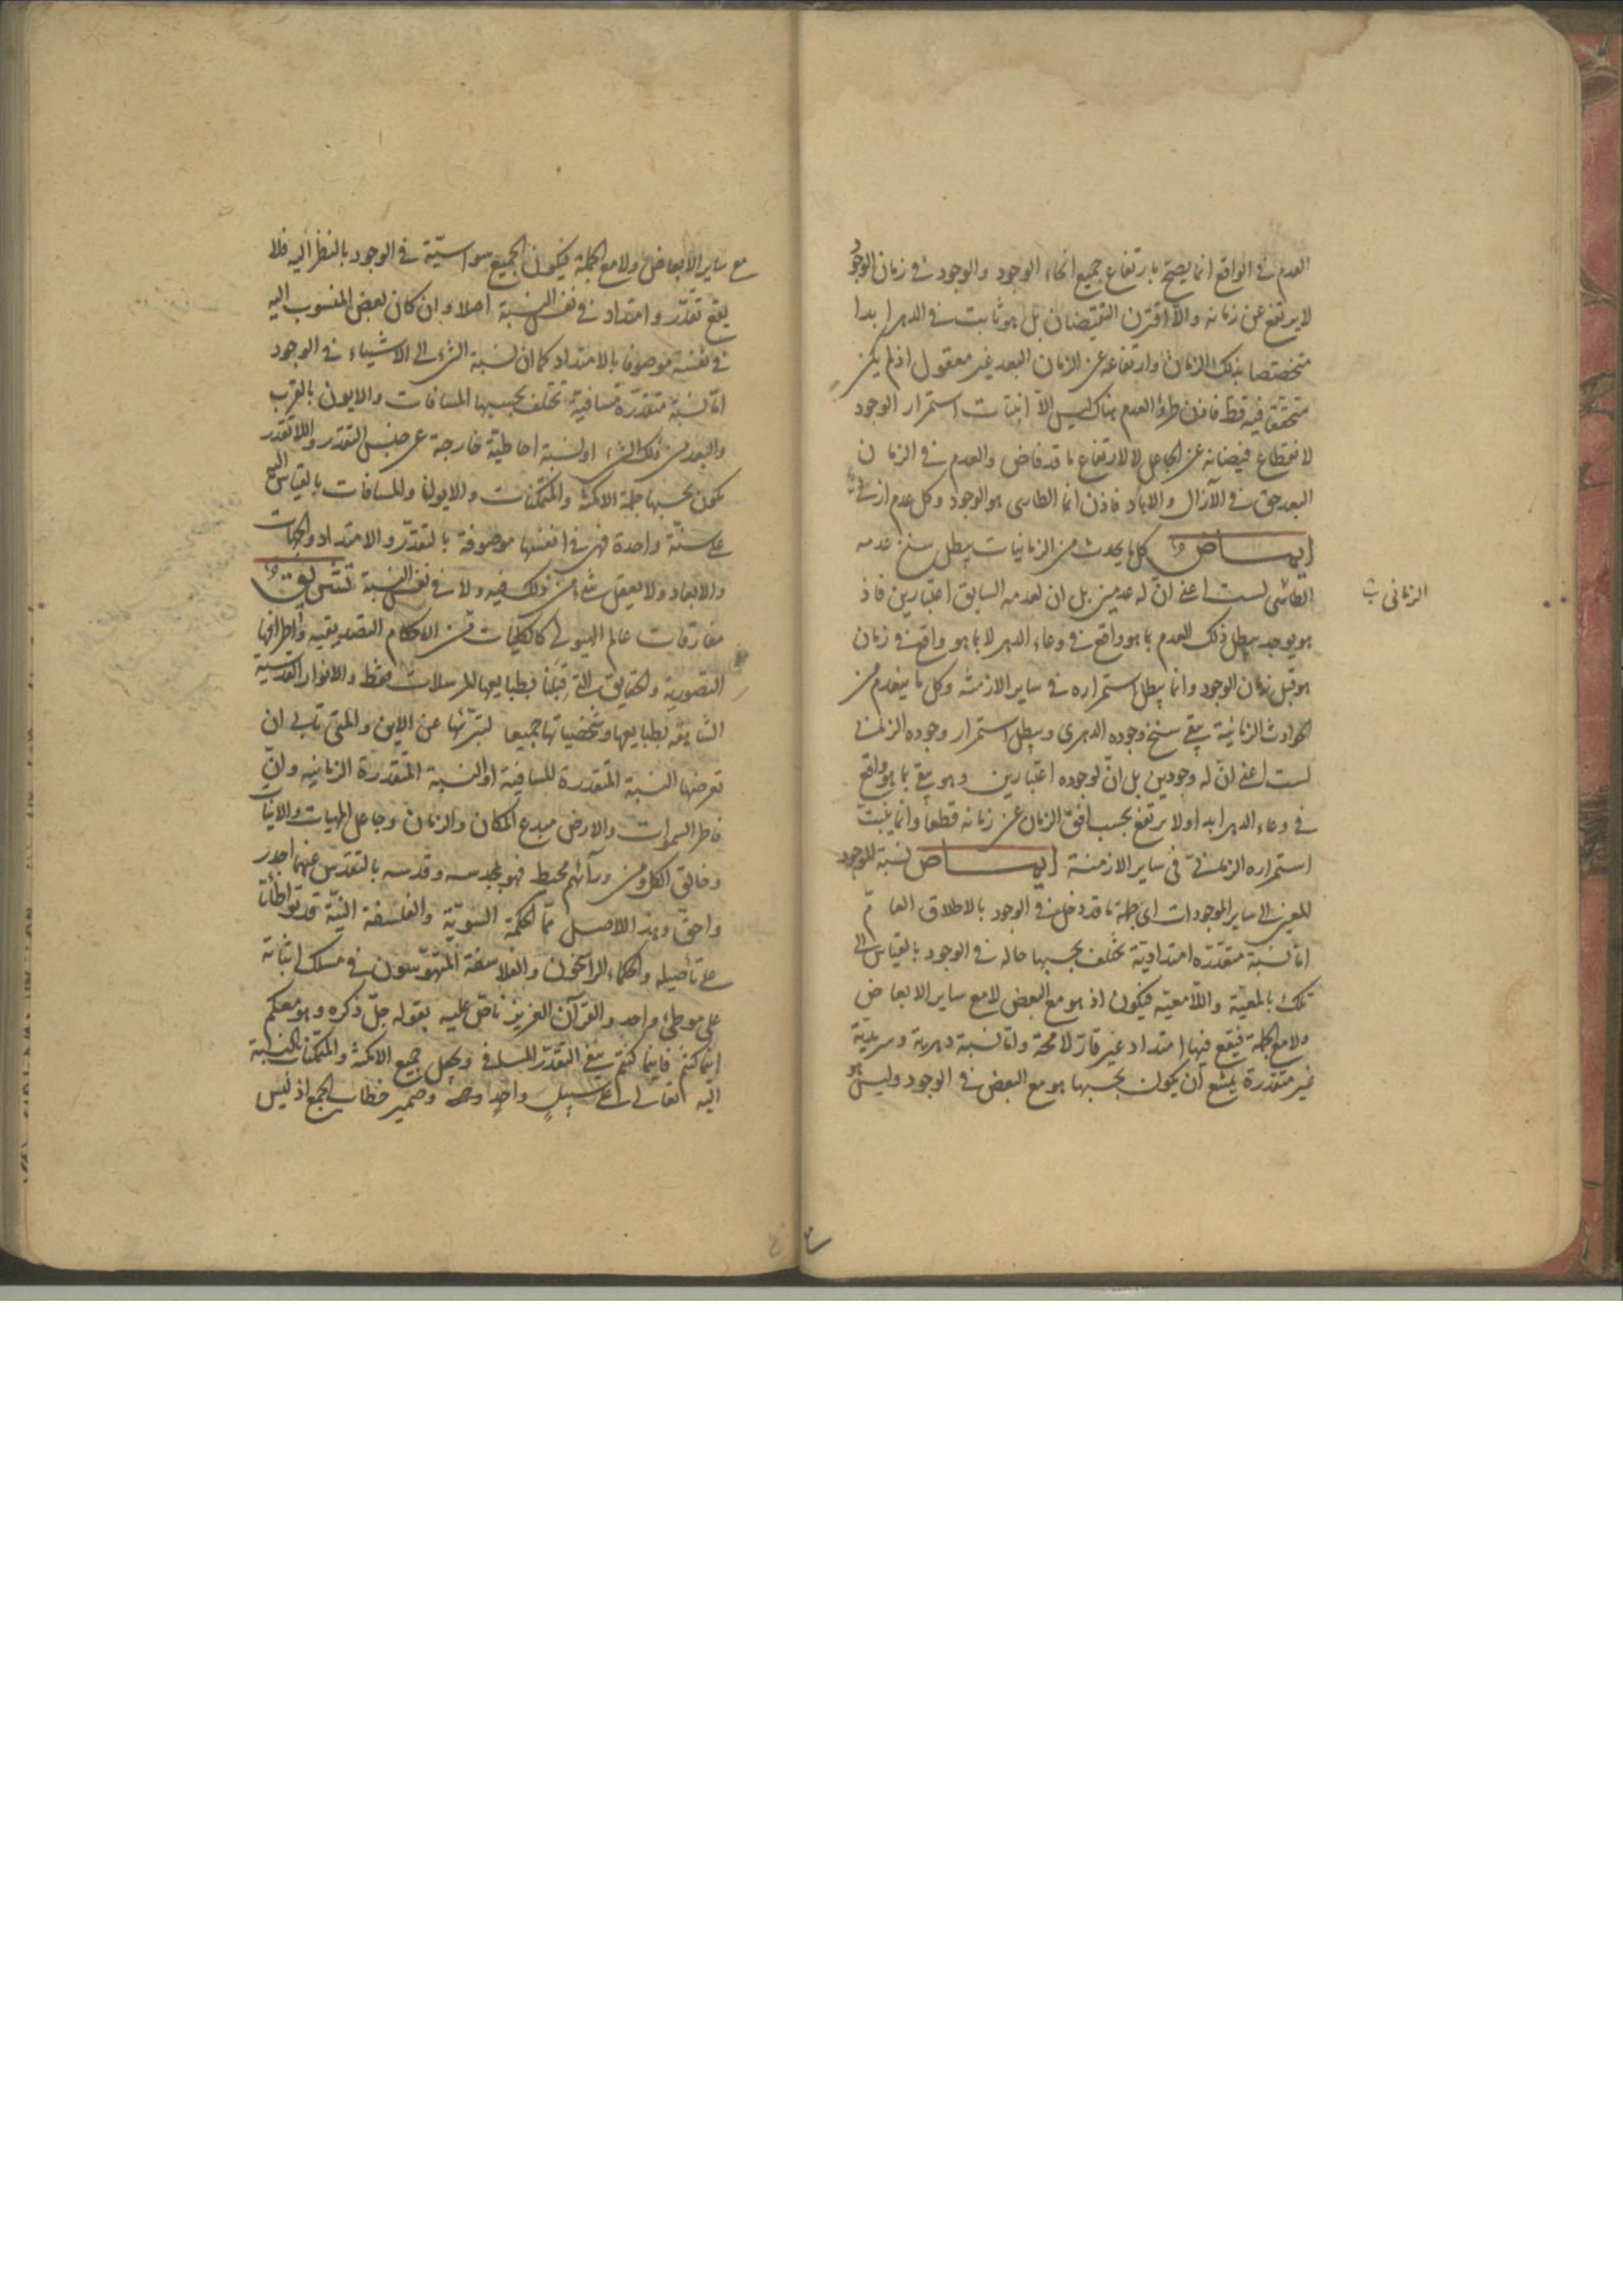 العدم في الواقع انما يصح بارتفاع جميع انحاء الوجود والوجود في زمان الوجود
لا يرتفع عن زمانه والا اقترن النقيضان بل هو ثابت في الدهر ابدا
متخصصا بذلك الزمان وارتفاعه عن الزمان البعد غير معقول اذ لم يكن
متحققا فيه قط فاذن طرؤ العدم هناك ليس الا انبتات استمرار الوجود
لانقطاع فيضانه عن الجاعل لا لارتفاع ما قد فاض والعدم في الزمان
البعد حق في الآزال والاباد فاذن انما الطارى هو الوجود وكل عدم ازلي
ايماض كل ما يحدث من الزمانيات يبطل سنخ عدمه
الزمانى
لست اعنى ان له عدمين بل ان لعدمه السابق اعتبارين فاذ
هو يوجد يبطل ذلك العدم بما هو واقع في وعاء الدهر لا بما هو واقع في زمان
هو قبل زمان الوجود وانما يبطل استمراره في ساير الازمنة وكل ما ينعدم من
الحوادث الزمانية يبقى سنخ وجوده الدهرى ويبطل استمرار وجوده الزماني
لست اعنى ان له وجودين بل ان لوجوده اعتبارين وهو يبقى بما هو واقع
في وعاء الدهر ابدا ولا يرتفع بحسب افق الزمان عن زمانه قطعا وانما ينبت
استمراره الزماني في ساير الازمنة ايماض نسبة الموجود
المعين الى ساير الموجودات اى جملة ما قد دخل في الوجود بالاطلاق العام
اما نسبة متقدرة امتدادية تختلف بحسبها حاله في الوجود بالقياس الى
تلك بالمعية واللامعية فيكون اذ هو مع البعض لا مع ساير الابعاض
ولا مع الجملة فيقع فيها امتداد غير قار لا محة واما نسبة دهرية وسرمدية
غير متقدرة يمتنع ان يكون بحسبها هو مع البعض في الوجود وليس هو
مع ساير الابعاض ولا مع الجملة فيكون الجميع سواسية في الوجود بالنظر اليه فلا
يقع تقدر وامتداد في نفس النسبة اصلا وان كان بعض المنسوب اليه
في نفسه موصوفا بالامتداد كما ان نسبة الشئ الى الاشياء في الوجود
اما نسبة متقدرة مسافية تختلف بحسبها المسافات والايون بالقرب
والبعد من ذلك الشئ او نسبة احاطية خارجة عن جنس التقدر واللاتقدر
يكون بحسبها جملة الامكنة والمتمكنات والايون والمسافات بالقياس اليه
على سنة واحدة فهى في انفسها موصوفة بالتقدر والامتداد والجهات
والابعاد ولا يعقل شئ من ذلك فيه ولا في نفس النسبة تشريق
مفارقات عالم الهيولى كالكليات من الاحكام التصديقية واطرافها
التصورية والحقايق قبلنا فبطبايعها المرسلات فقط والانوار القدسية
الشاهقة بطبايعها وشخصياتها جميعا لتبرئها عن الاين والمتى تابى ان
تعرضها النسبة المتقدرة المسافية او النسبة المتقدرة الزمانية وان
فاطر السموات والارض مبدع المكان والزمان وجاعل المهيات والانيات
وخالق الكل ومن ورآئهم محيط فهو بمجده وقدسه بالتقدس عنهما اجدر
واحق وهذا الاصل مما الحكمة السوية والفلسفة النية قد تواطأتا
على تأصيله والحكماء الراسخون والفلاسفة المتهوسون في مسلك اثباته
على موطئ واحد والقرآن العزيز ناص عليه بقوله جل ذكره وهو معكم
اينما كنتم فاينما كنتم ينفى التقدر المسافى ويجعل جميع الامكنة والمتمكنات بالنسبة
اليه تعالى على سبيل واحد وضمير خطاب الجمع اذ ليس